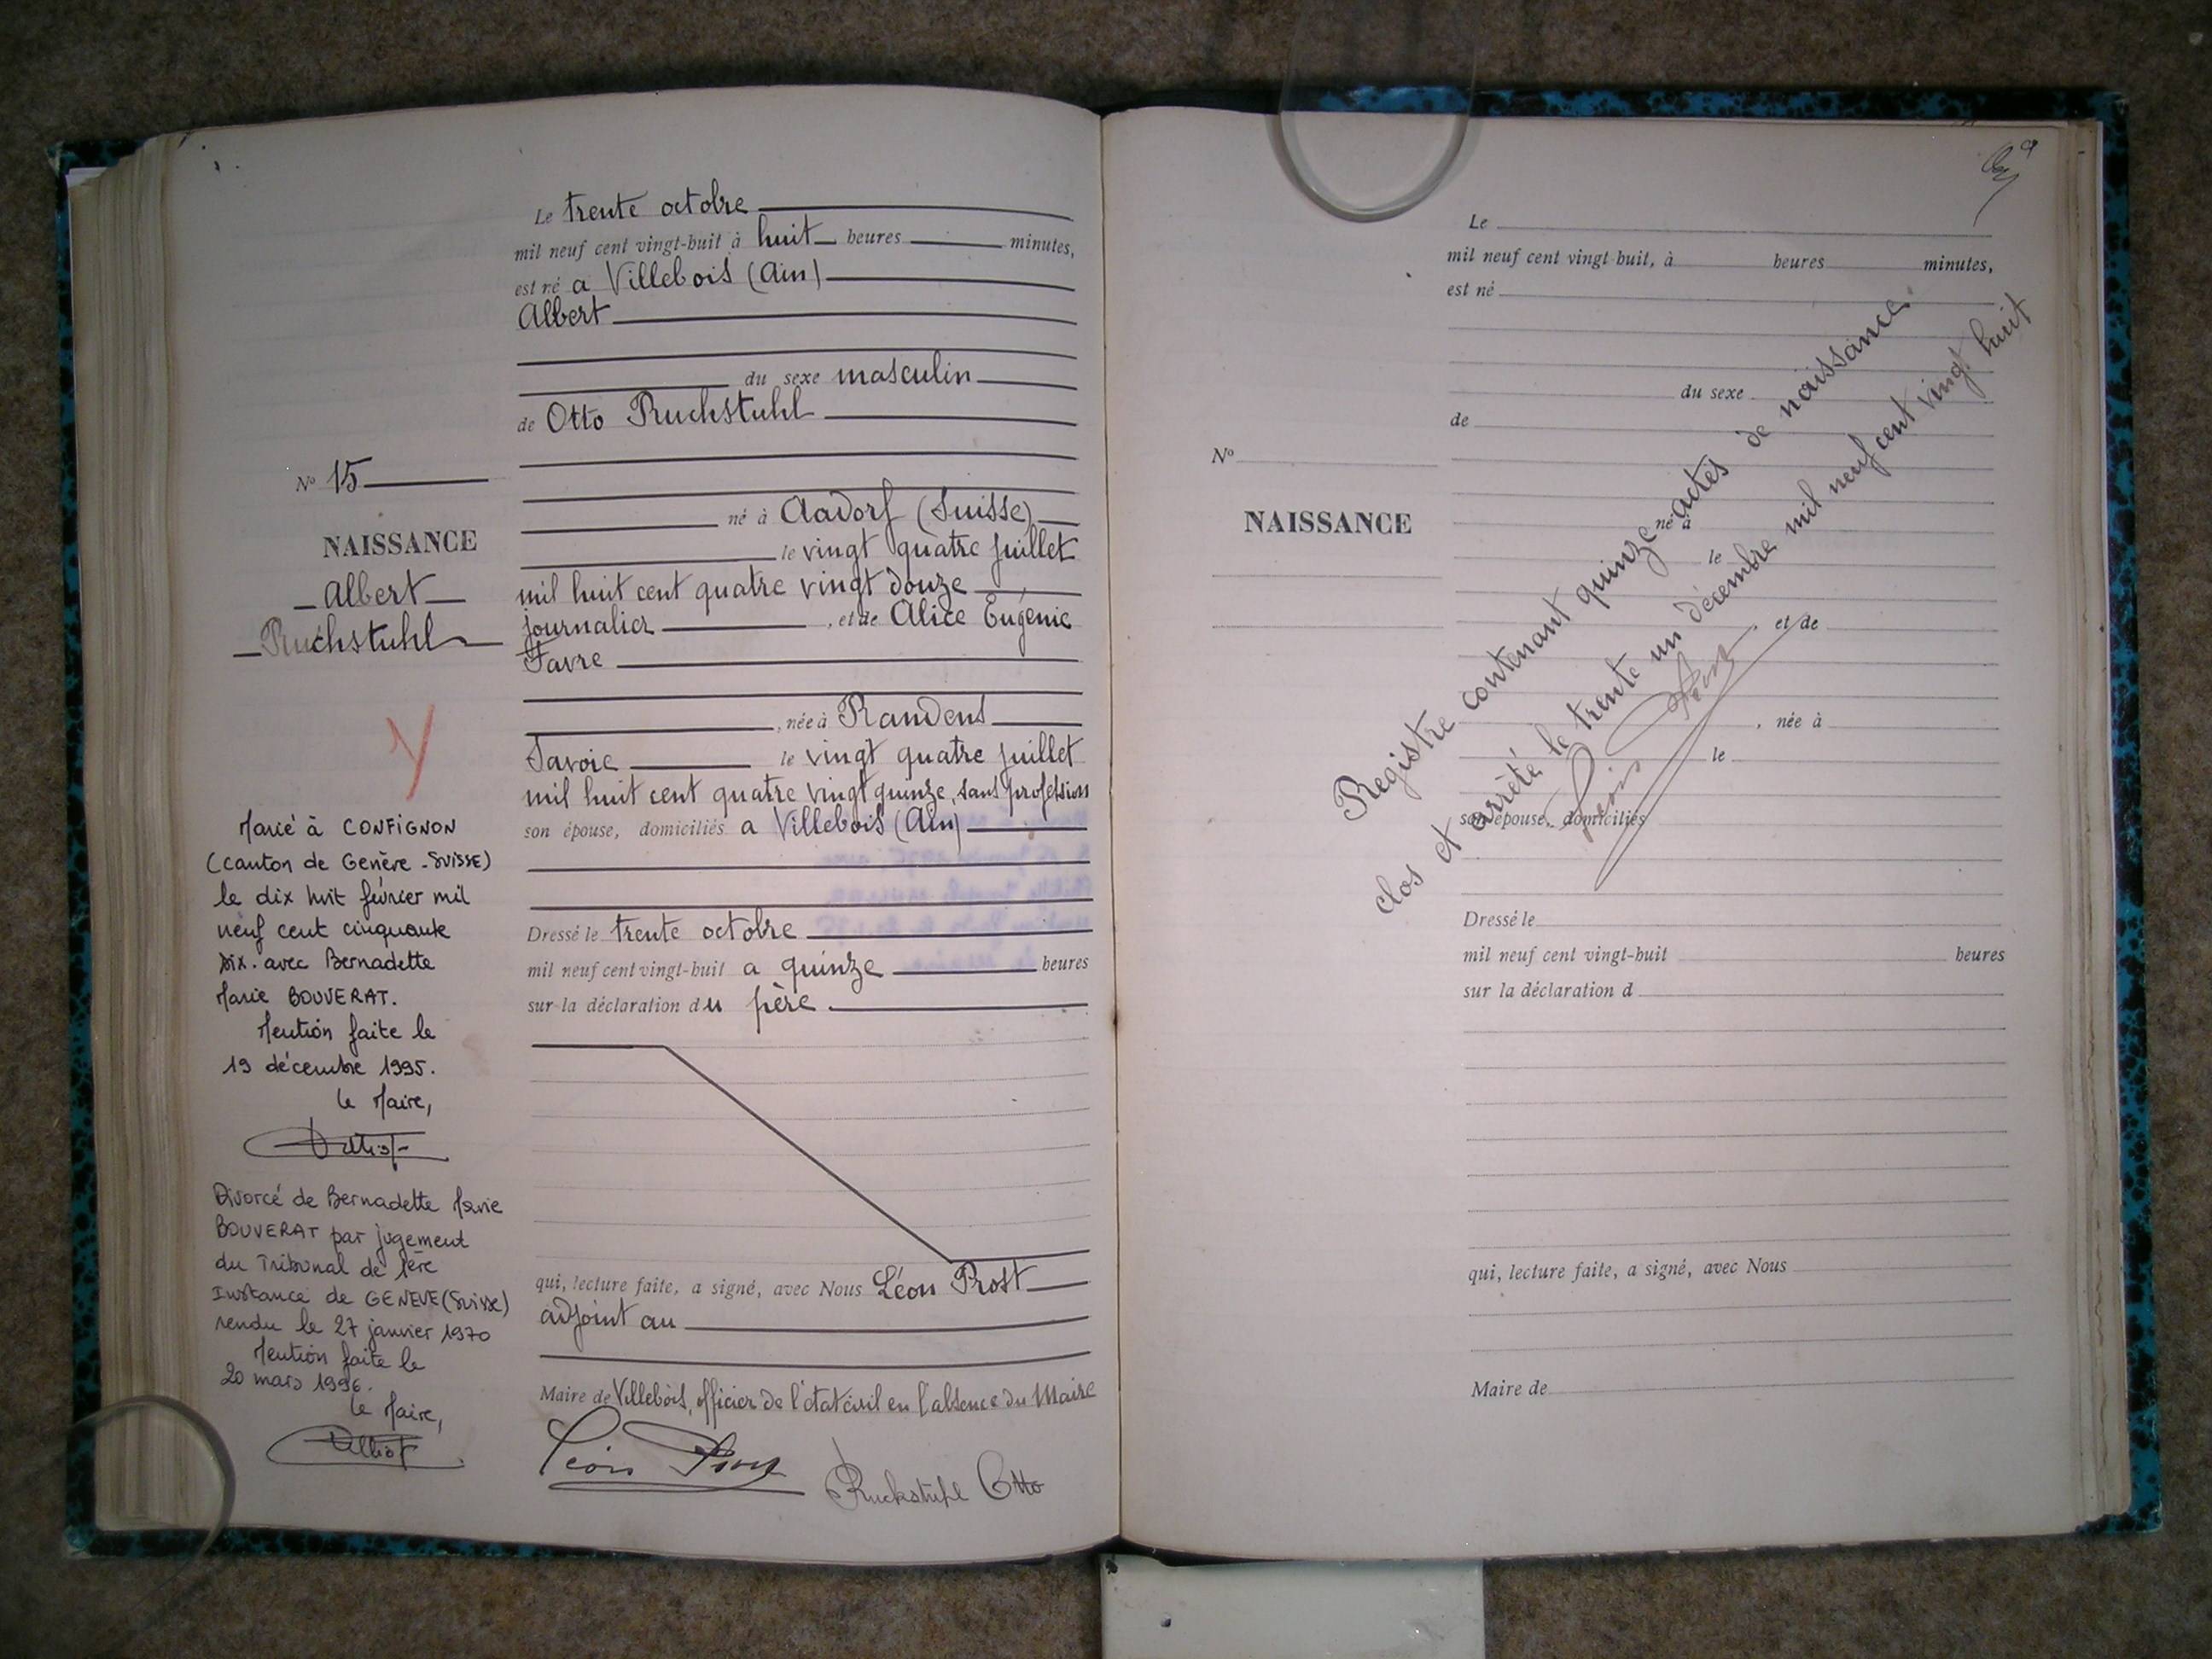 Le trente octobre
mil neuf cent vingt-huit à huit heures minutes,
est né a Villebois (Ain)
Albert
du sexe masculin
de Otto Ruchstuhl
né à Aadorf (Suisse)
le vingt quatre juillet
mil huit cent quatre vingt douze
journalier , et de Alice Eugénie
Favre
, née à Randens
Savoie le vingt quatre juillet
mil huit cent quatre vingt quinze, sans profession
son épouse, domiciliés a Villebois (Ain)
Dressé le trente octobre
mil neuf cent vingt-huit a quinze heures
sur la déclaration du père
qui, lecture faite, a signé, avec Nous Léon Prost
adjoint au
Maire de Villebois, officier de l'état civil en l'absence du Maire
Léon Prost Ruckstuhl Otto
No 15
NAISSANCE
Albert
Ruchstuhl
Marié à CONFIGNON
(canton de Genève - SUISSE)
le dix huit février mil
neuf cent cinquante
six. avec Bernadette
Marie BOUVERAT.
Mention faite le
19 décembre 1995.
le Maire,
Divorcé de Bernadette Marie
BOUVERAT par jugement
du Tribunal de 1ère
Instance de GENEVE (Suisse)
rendu le 27 janvier 1970
Mention faite le
20 mars 1996.
le Maire,
Le
mil neuf cent vingt-huit, à heures minutes,
est né
du sexe
de
No
NAISSANCE
né à
le
, et de
, née à
le
son épouse, domiciliés
Dressé le
mil neuf cent vingt-huit heures
sur la déclaration d
qui, lecture faite, a signé, avec Nous
Maire de
Registre contenant quinze actes de naissance
clos et arrêté le trente un décembre mil neuf cent vingt huit
Léon Prost